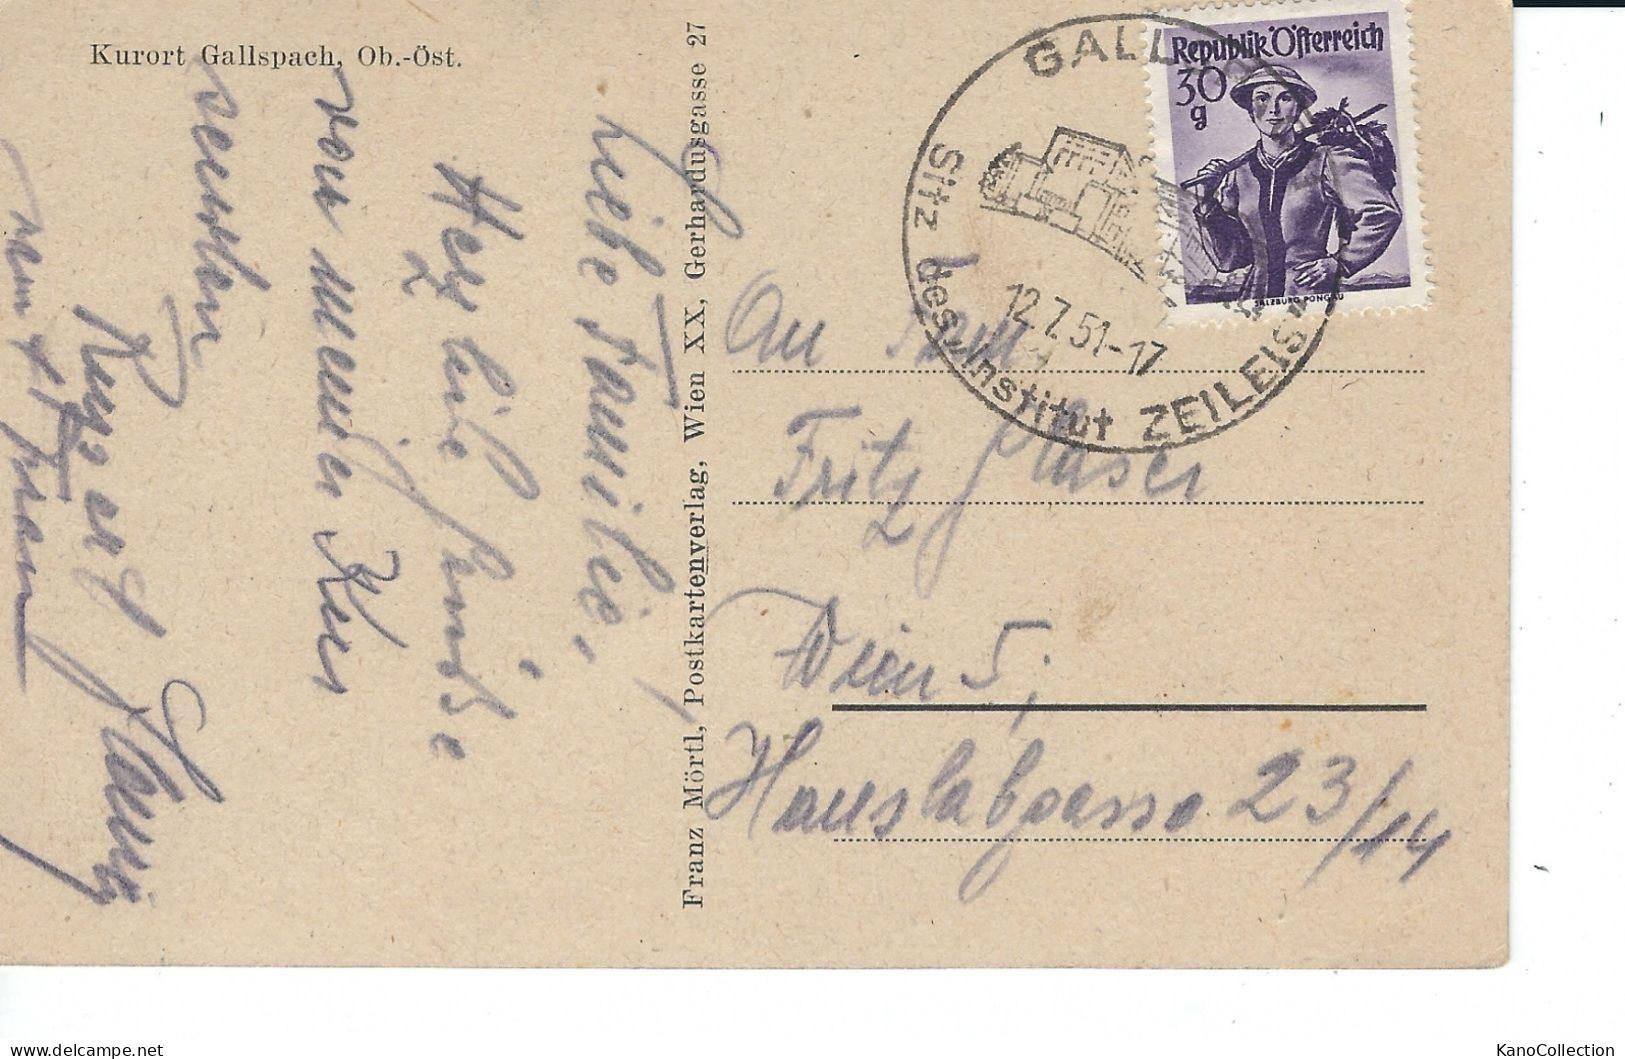 Kurort Gallspach, Ob.-Öst.
Liebe Familie,
Herzliche Grüße
von meiner Kur
senden
Franz Mörtl, Postkartenverlag, Wien XX, Gerhardusgasse 27
GALL
Sitz des Institut ZEILEIS
12.7.51-17
Republik Österreich
30
g
SALZBURG PONGAU
An Fam
Fritz Glaser
Wien 5,
Hauslabgasse 23/14
www.delcampe.net
KanoCollection